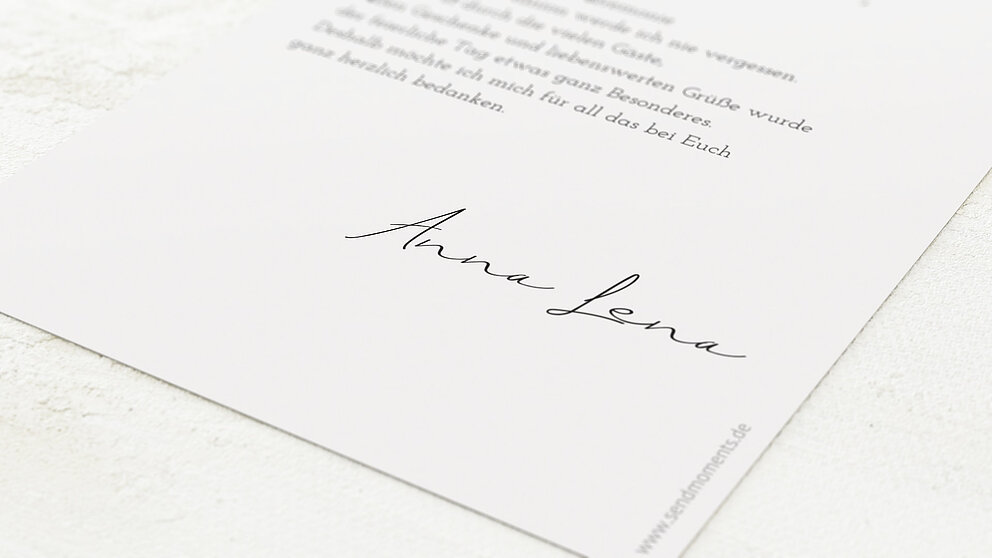 werde ich nie vergessen.
durch die vielen Gäste,
Geschenke und liebenswerten Grüße wurde
der feierliche Tag etwas ganz Besonderes.
Deshalb möchte ich mich für all das bei Euch
ganz herzlich bedanken.
Anna Lena
www.sendmoments.de